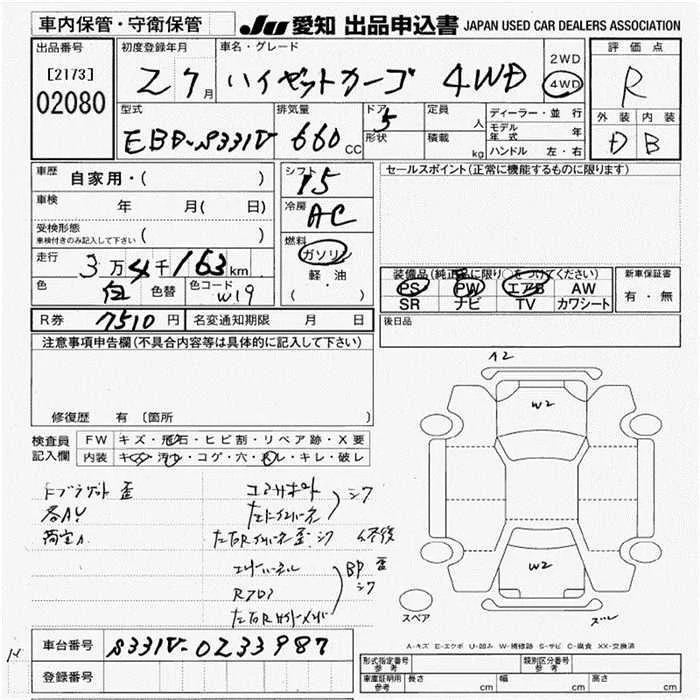 車内保管・守衛保管
JU 愛知 出品申込書 JAPAN USED CAR DEALERS ASSOCIATION
出品番号
[2173]
02080
初度登録年月
27 月
車名・グレード
ハイゼットカーゴ 4WD
2WD
4WD
評価点
R
外装 内装
D B
型式
EBD-S331V
排気量
660 CC
ドア
5
形状
定員
人
積載
kg
ディーラー・並行
モデル年式 年
ハンドル 左・右
車歴
自家用・( )
車検
年 月( 日)
受検形態
車検付きのみ記入して下さい ( )
走行
3万4千163km
色
白 色替 色コード W19
シフト
冷房
AC
燃料
ガソリン
軽油
( ・ )
セールスポイント(正常に機能するものに限ります)
装備品(純正品に限り○をつけてください)
PS PW エアB AW
SR ナビ TV カワシート
新車保証書
有・無
R券 7510 円 名変通知期限 月 日
後日品
注意事項申告欄(不具合内容等は具体的に記入して下さい)
修復歴 有 〔箇所
検査員
記入欄
FW キズ・飛石・ヒビ割・リペア跡・X要
内装 キズ・汚れ・コゲ・穴・スレ・キレ・破レ
A2
W2
W2
スペア
A-キズ E-エクボ U-凹み W-補修跡 S-サビ C-腐食 XX-交換済
車台番号 S331V-0233987
登録番号
形式指定番号
参考
類別区分番号
参考
車庫証明用
参考
長さ cm 幅 cm 高さ cm